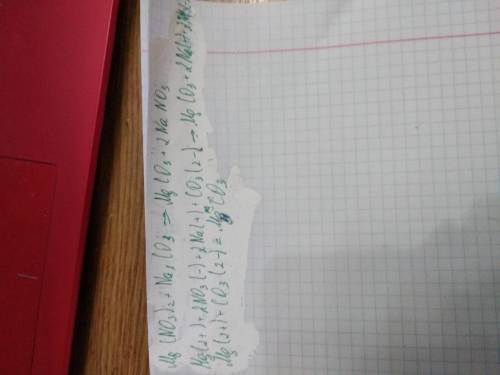 Mg(NO3)2 + Na2CO3 → MgCO3 + 2NaNO3
Mg(2+) + 2NO3(-) + 2Na(+) + CO3(2-) → MgCO3 + 2Na(+) +
Mg(2+) + CO3(2-) = MgCO3